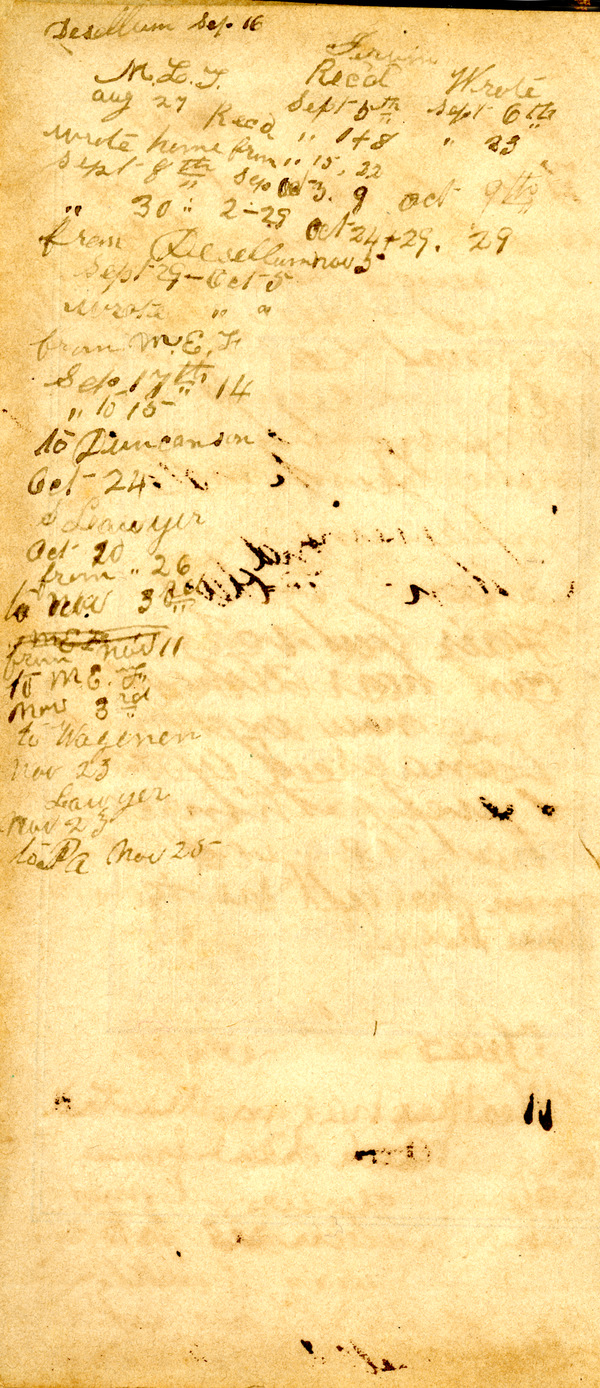 Desellum Sep. 16
M. L. F. Recd Wrote
aug 27 Sept 5th Sept 6th
Recd " 1+8 " 23
wrote home from " 15, 22
Sept 8th Sep Oct 3. 9 Oct 9th
" 30 " 2-29 Oct 24+29. 29
from Desellum nov 5
Sept 29 - Oct 5
wrote " "
from M. E. F
Sep 17th " 14
" 15
to Duncanson
Oct 24
Lawyer
Oct 20
from " 26
to 3rd
from nov 11
to M. E. F.
Nov 3rd
to Wagenen
Nov 23
Lawyer
Nov 23
to Pa Nov 25